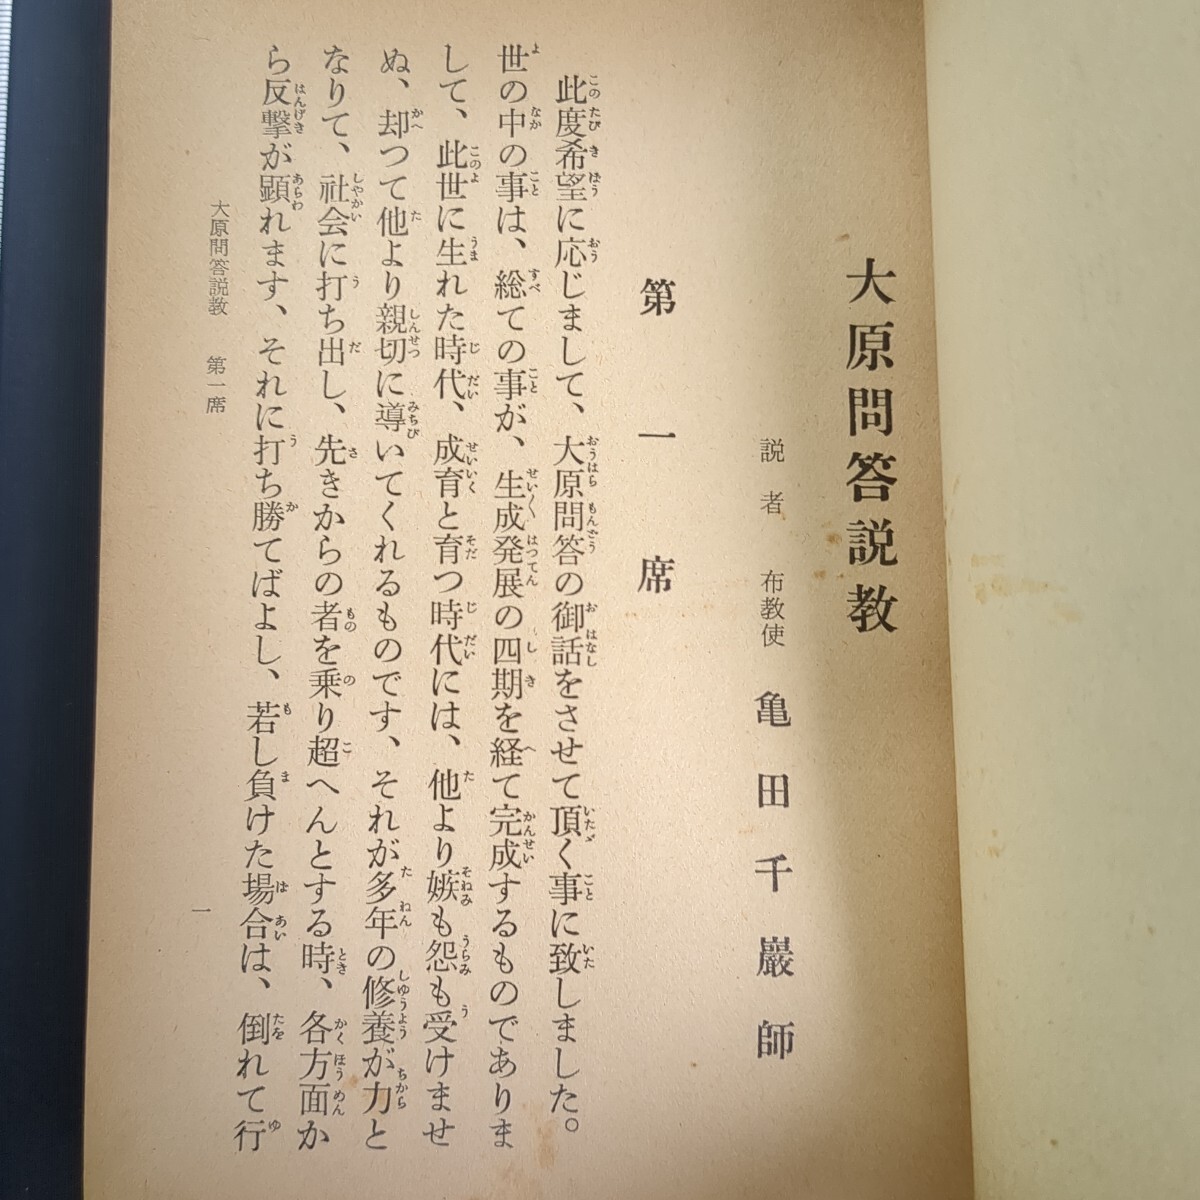 大原問答説教
説者 布教使 亀田千巖師
第一席
此度希望に応じまして、大原問答の御話をさせて頂く事に致しました。
世の中の事は、総ての事が、生成発展の四期を経て完成するものでありま
して、此世に生れた時代、成育と育つ時代には、他より嫉も怨も受けませ
ぬ、却つて他より親切に導いてくれるものです、それが多年の修養が力と
なりて、社会に打ち出し、先きからの者を乗り超へんとする時、各方面か
ら反撃が顕れます、それに打ち勝てばよし、若し負けた場合は、倒れて行
大原問答説教 第一席
一